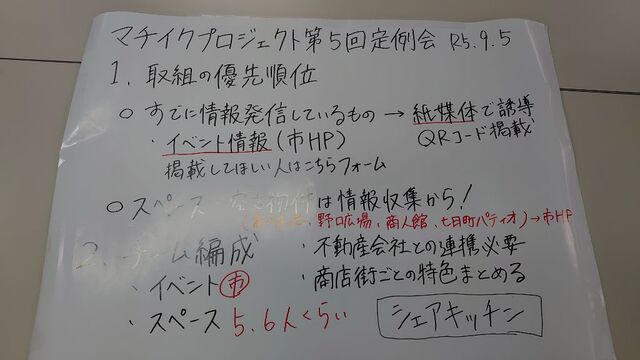 マチイクプロジェクト第5回定例会 R5.9.5
1. 取組の優先順位
○ すでに情報発信しているもの → 紙媒体で誘導
・イベント情報(市HP) QRコード掲載
掲載してほしい人はこちらフォーム
○ スペース は情報収集から!
野口広場、商人館、七日町パティオ)→市HP
2. チーム編成 ・不動産会社との連携必要
・イベント 市 ・商店街ごとの特色まとめる
・スペース 5.6人くらい シェアキッチン